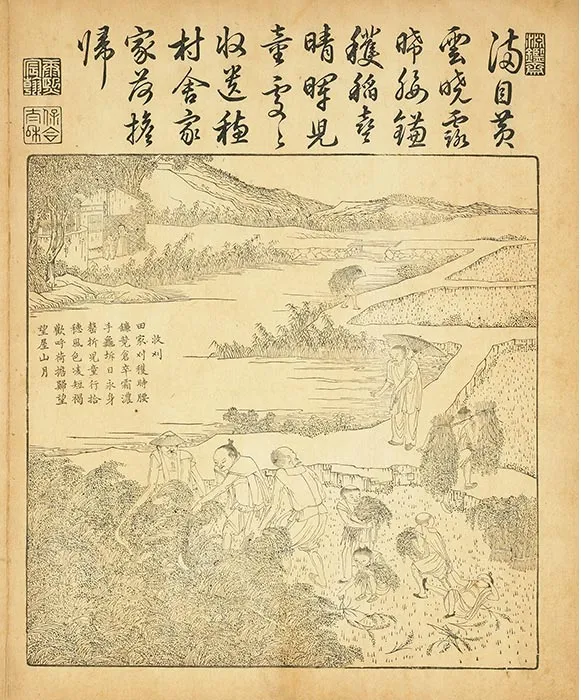 淵鑑齋
滿目黃
雲曉露
晞腰鎌
穫稻喜
晴暉兒
童處〻
收遺穗
村舍家
家荷擔
歸
康熙宸翰
保合太和
收刈
田家刈穫時腰
鐮競倉卒霜濃
手龜坼日永身
罄折兒童行拾
穗風色凌短褐
歡呼荷擔歸望
望屋山月